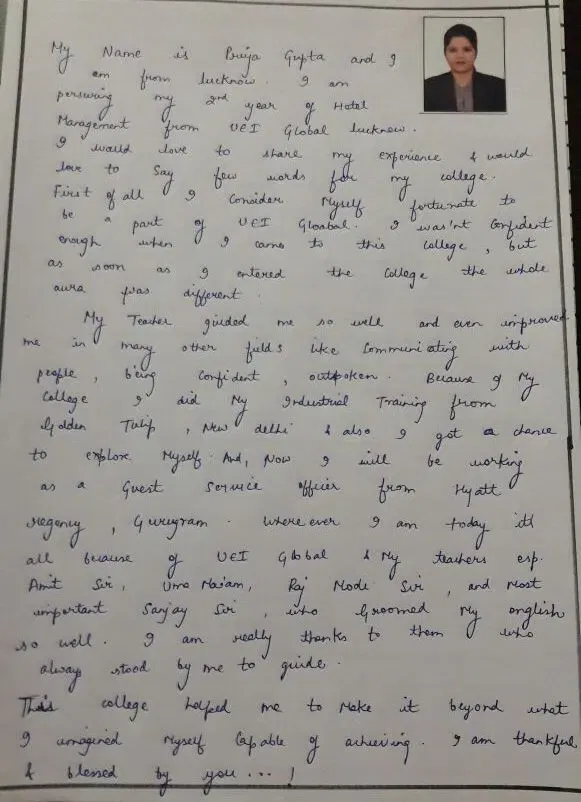 My Name is Priya Gupta and I
am from lucknow. I am
persuring my 2nd year of Hotel
Management from UEI Global lucknow.
I would love to share my experience & would
love to Say few words for my college.
First of all I Consider Myself fortunate to
be a part of UEI Gloabal. I was'nt Confident
enough when I came to this College, but
as soon as I entered the College the whole
aura was different.
My Teacher guided me so well and even improved
me in many other fields like Communicating with
people, being Confident, outspoken. Because of My
College I did My Industrial Training from
Golden Tulip, New delhi & also I got a chance
to explore Myself. And, Now I will be working
as a Guest Service officer from Hyatt
regency, Gurugram. Where ever I am today itll
all because of UEI Global & My teachers esp.
Amit Sir, Uma Ma'am, Raj Modi Sir, and Most
important Sanjay Sir, who Groomed My english
so well. I am really thanks to them who
always stood by me to guide.
This college helped me to Make it beyond what
I imagined Myself Capable of achieving. I am thankful
& blessed by you...!